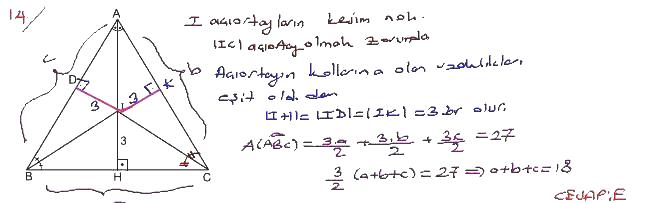 14/
I açıortayların kesim nok.
|IC| açıortay olmak zorunda
Açıortayın kollarına olan uzaklıkları
eşit old. dan
|IH|=|ID|=|IK|=3 br olur.
A(ABC) = 3.a/2 + 3.b/2 + 3c/2 = 27
3/2 (a+b+c) = 27 => a+b+c = 18
CEVAP:E
A
c
b
D
K
3
3
I
3
B
H
C